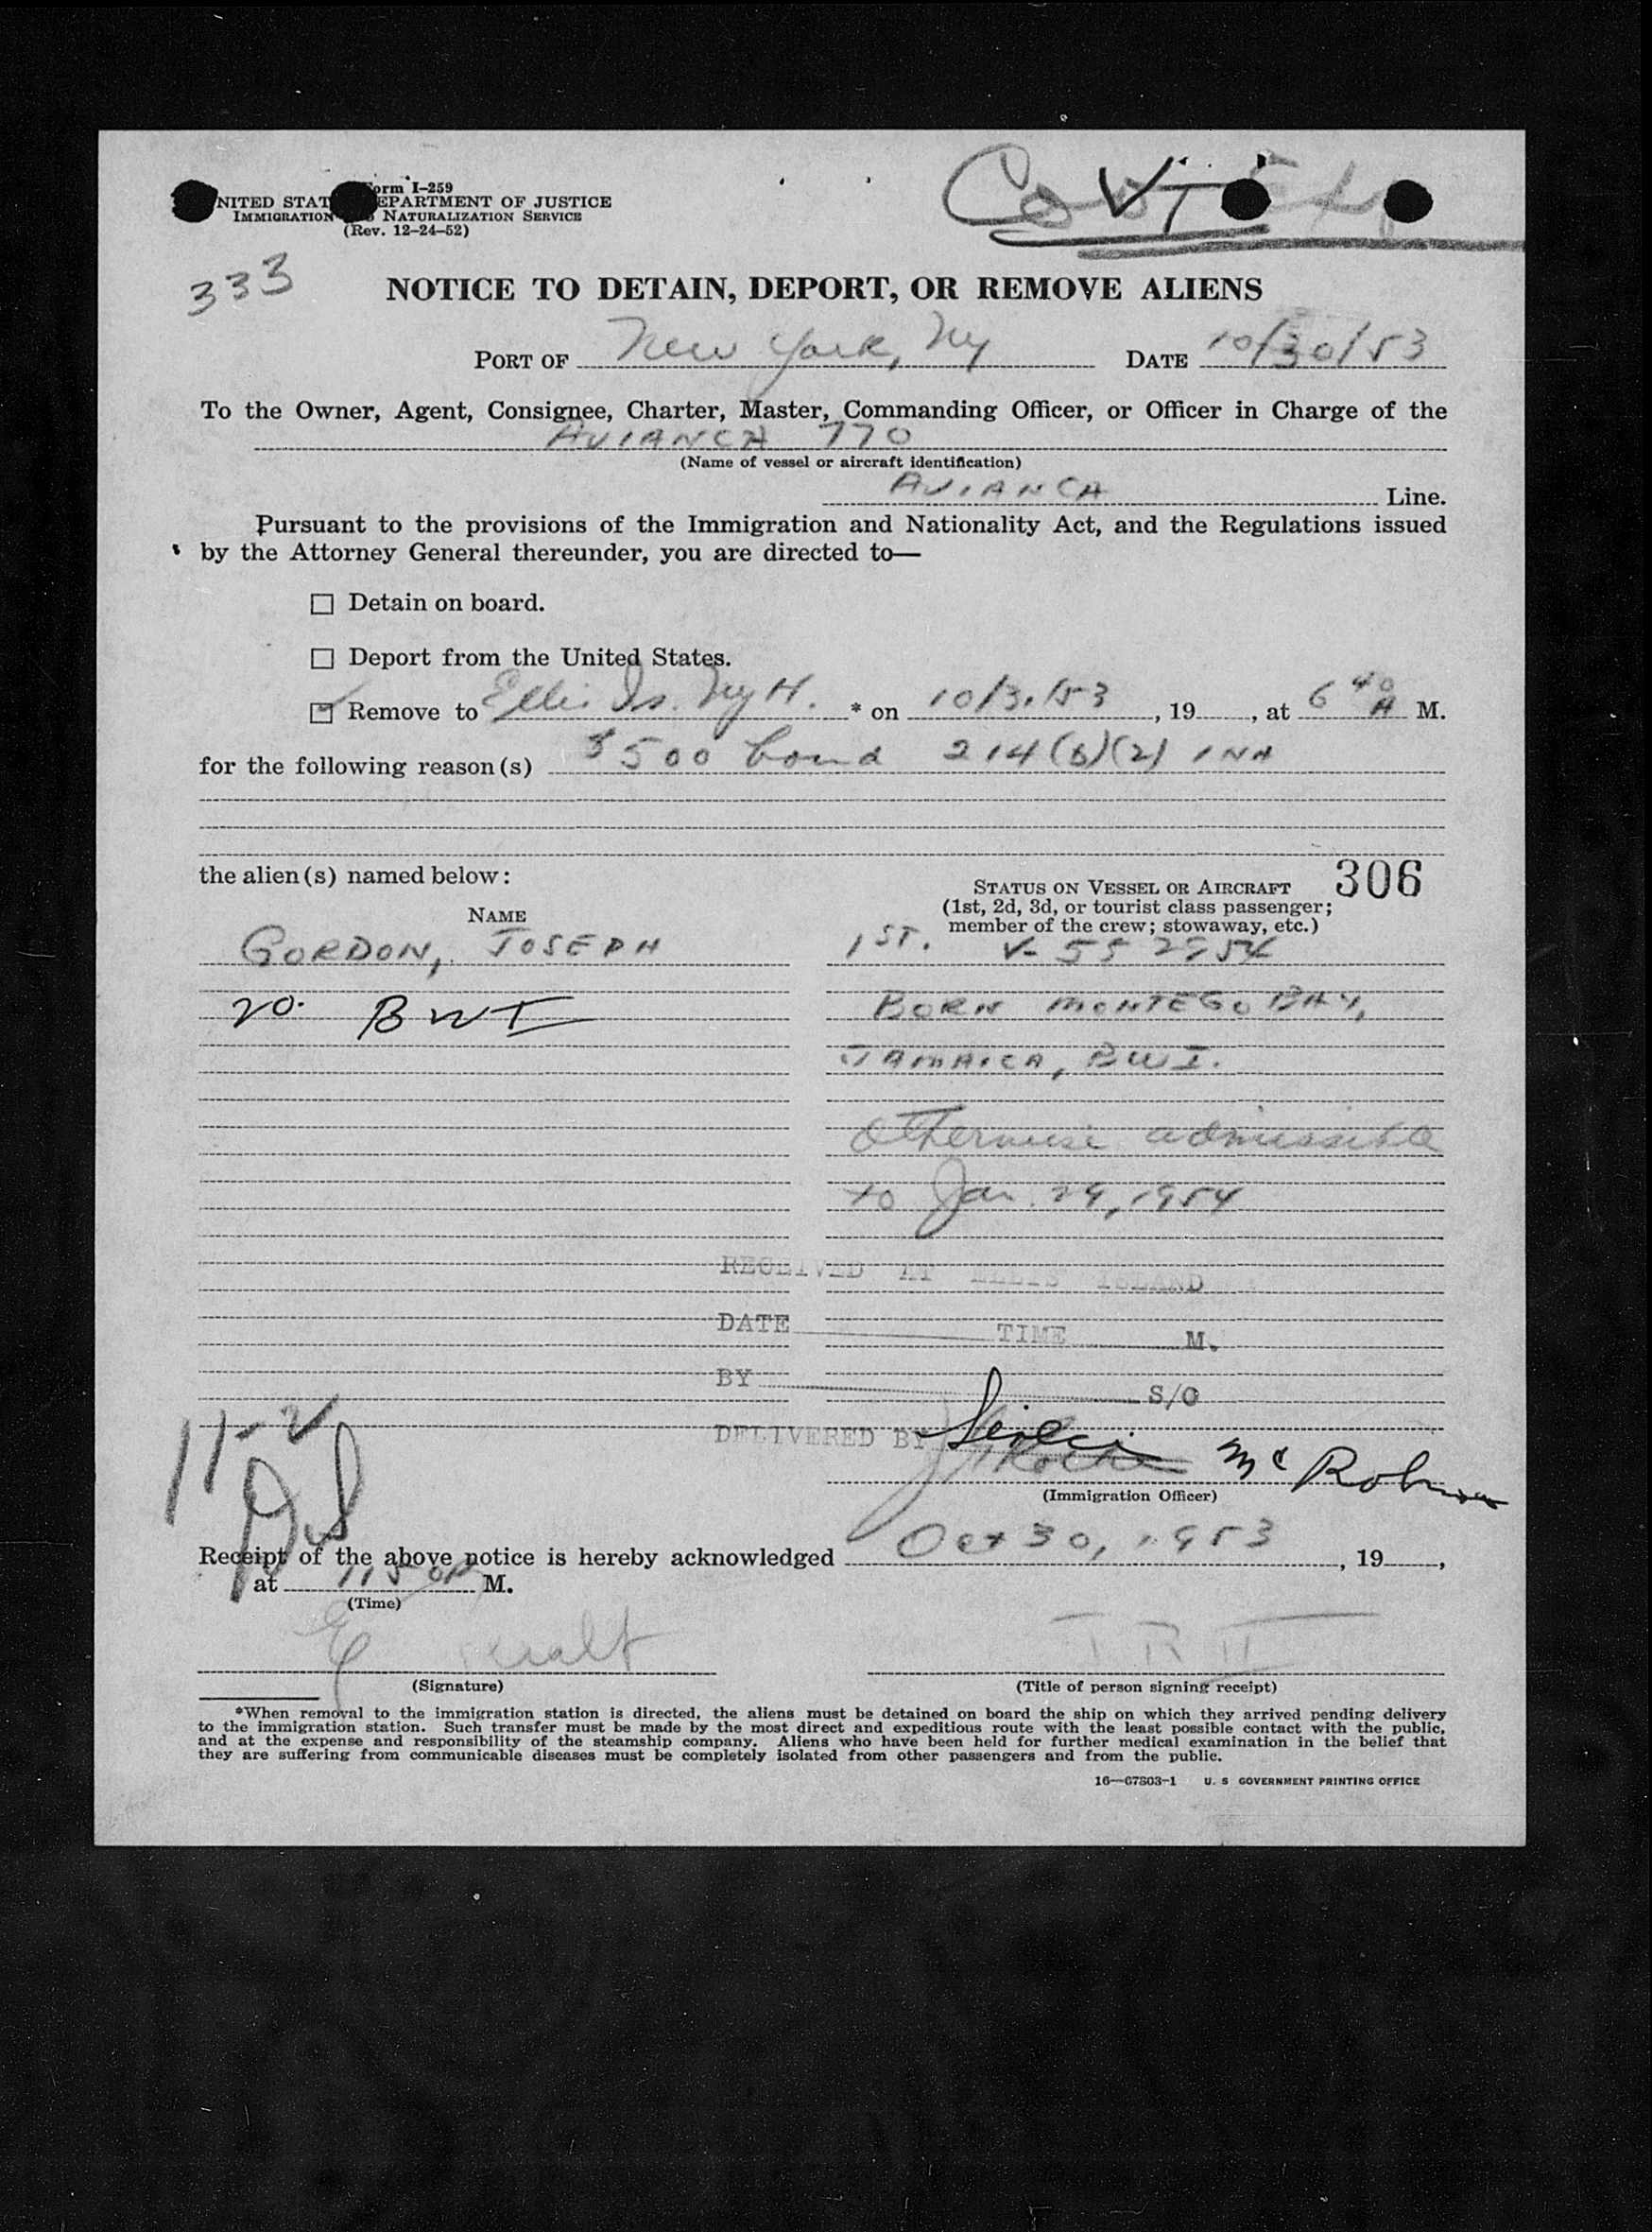 Form I-259
UNITED STATES DEPARTMENT OF JUSTICE
IMMIGRATION AND NATURALIZATION SERVICE
(Rev. 12-24-52)
333
NOTICE TO DETAIN, DEPORT, OR REMOVE ALIENS
PORT OF New York, Ny DATE 10/30/53
To the Owner, Agent, Consignee, Charter, Master, Commanding Officer, or Officer in Charge of the
AVIANCA 770
(Name of vessel or aircraft identification)
AVIANCA Line.
Pursuant to the provisions of the Immigration and Nationality Act, and the Regulations issued
by the Attorney General thereunder, you are directed to—
☐ Detain on board.
☐ Deport from the United States.
☑ Remove to Ellis Is. NyH. * on 10/31/53, 19, at 6 40 A M.
for the following reason(s) $500 bond 214(b)(2) INA
the alien(s) named below:
306
NAME
STATUS ON VESSEL OR AIRCRAFT
(1st, 2d, 3d, or tourist class passenger;
member of the crew; stowaway, etc.)
GORDON, JOSEPH 1ST.
20. BWI BORN MONTEGO BAY,
JAMAICA, BWI.
Otherwise admissible
to Jan. 29, 1954
RECEIVED AT ELLIS ISLAND
DATE TIME M.
BY S/O
11-2
DELIVERED BY
(Immigration Officer)
Receipt of the above notice is hereby acknowledged Oct 30, 1953, 19,
at 1150P M.
(Time)
(Signature) (Title of person signing receipt)
*When removal to the immigration station is directed, the aliens must be detained on board the ship on which they arrived pending delivery
to the immigration station. Such transfer must be made by the most direct and expeditious route with the least possible contact with the public,
and at the expense and responsibility of the steamship company. Aliens who have been held for further medical examination in the belief that
they are suffering from communicable diseases must be completely isolated from other passengers and from the public.
16—67803-1 U. S GOVERNMENT PRINTING OFFICE